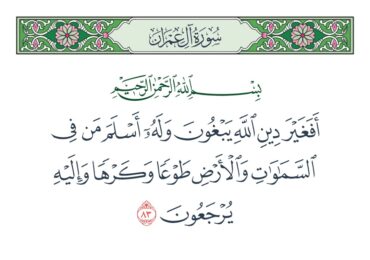 سُورَةُ آلِ عِمْرَانَ
بِسْمِ اللَّهِ الرَّحْمَٰنِ الرَّحِيمِ
أَفَغَيْرَ دِينِ اللَّهِ يَبْغُونَ وَلَهُۥٓ أَسْلَمَ مَن فِى
السَّمَٰوَٰتِ وَالْأَرْضِ طَوْعًا وَكَرْهًا وَإِلَيْهِ
يُرْجَعُونَ ٨٣